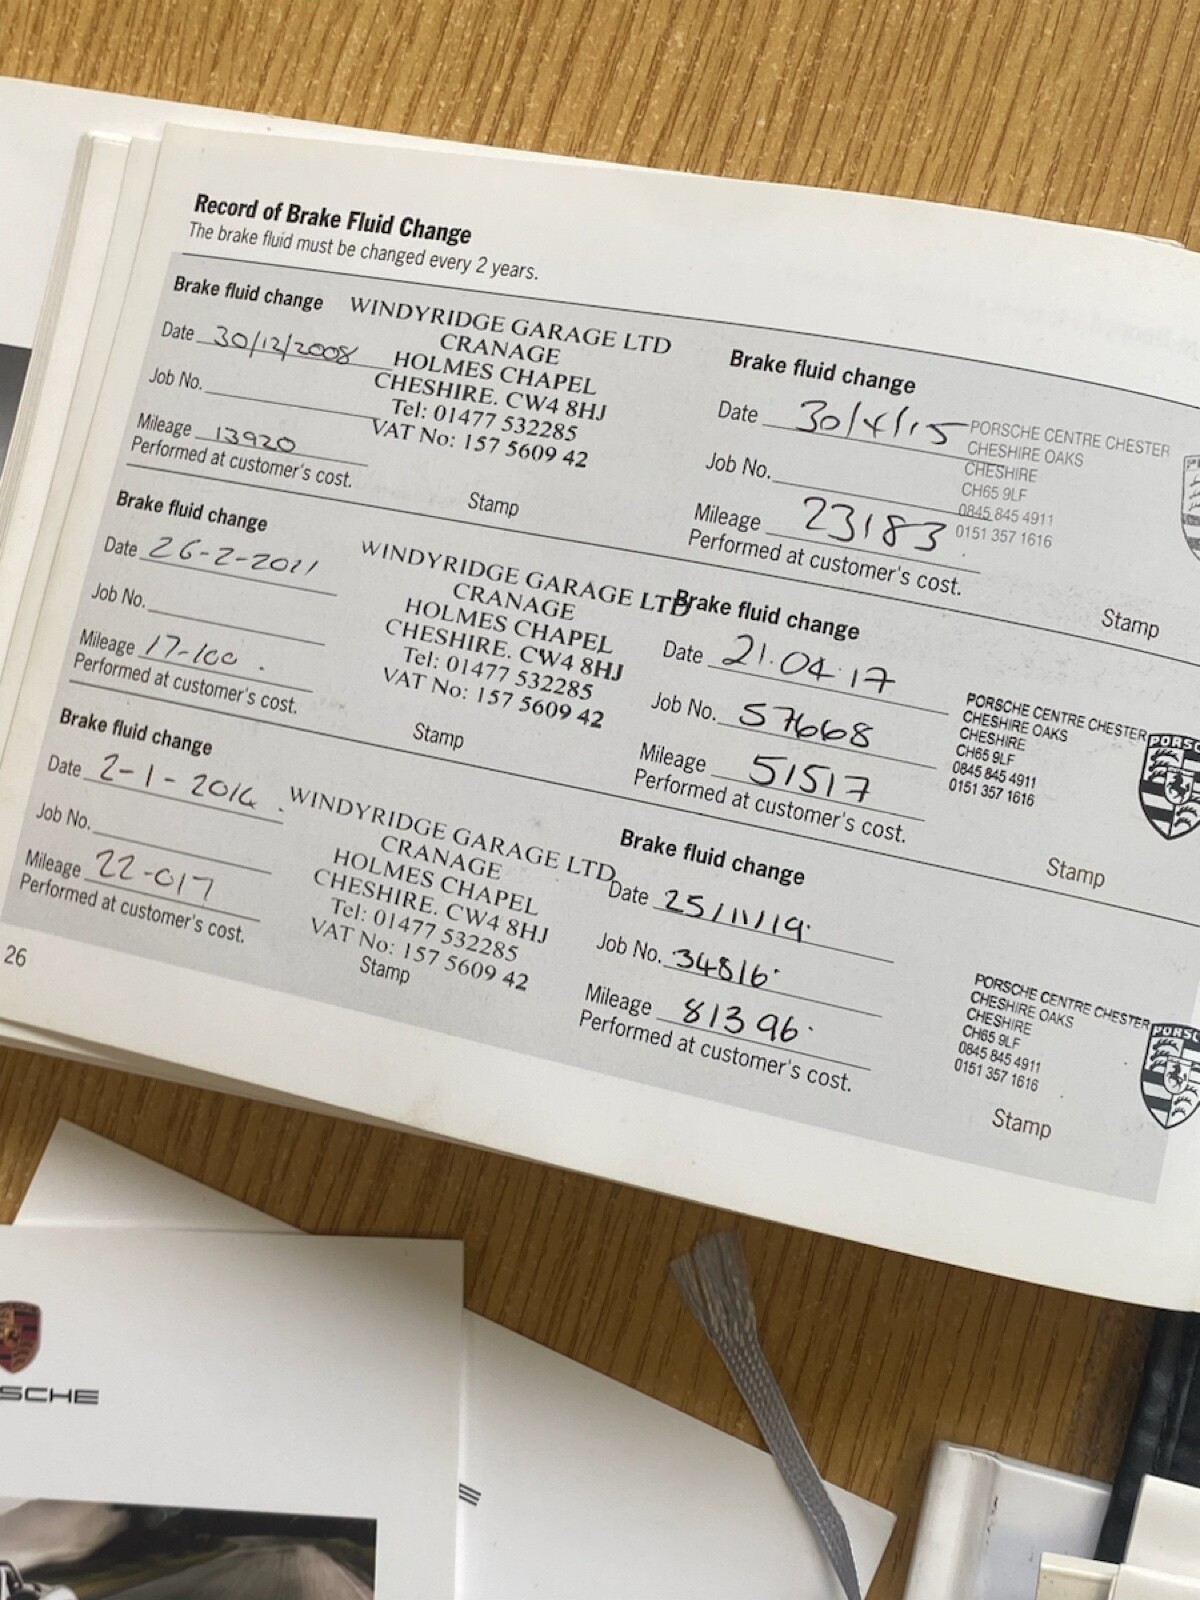 Record of Brake Fluid Change
The brake fluid must be changed every 2 years.
Brake fluid change
Date 30/12/2008
Job No.
Mileage 13920
Performed at customer's cost.
WINDYRIDGE GARAGE LTD
CRANAGE
HOLMES CHAPEL
CHESHIRE. CW4 8HJ
Tel: 01477 532285
VAT No: 157 5609 42
Stamp
Brake fluid change
Date 26-2-2011
Job No.
Mileage 17-100.
Performed at customer's cost.
WINDYRIDGE GARAGE LTD
CRANAGE
HOLMES CHAPEL
CHESHIRE. CW4 8HJ
Tel: 01477 532285
VAT No: 157 5609 42
Stamp
Brake fluid change
Date 2-1-2014.
Job No.
Mileage 22-017
Performed at customer's cost.
WINDYRIDGE GARAGE LTD
CRANAGE
HOLMES CHAPEL
CHESHIRE. CW4 8HJ
Tel: 01477 532285
VAT No: 157 5609 42
Stamp
26
Brake fluid change
Date 30/4/15
Job No.
Mileage 23183
Performed at customer's cost.
PORSCHE CENTRE CHESTER
CHESHIRE OAKS
CHESHIRE
CH65 9LF
0845 845 4911
0151 357 1616
Stamp
Brake fluid change
Date 21.04.17
Job No. 57668
Mileage 51517
Performed at customer's cost.
PORSCHE CENTRE CHESTER
CHESHIRE OAKS
CHESHIRE
CH65 9LF
0845 845 4911
0151 357 1616
PORSC
Stamp
Brake fluid change
Date 25/11/19.
Job No. 34816.
Mileage 81396.
Performed at customer's cost.
PORSCHE CENTRE CHESTER
CHESHIRE OAKS
CHESHIRE
CH65 9LF
0845 845 4911
0151 357 1616
PORSC
Stamp
SCHE